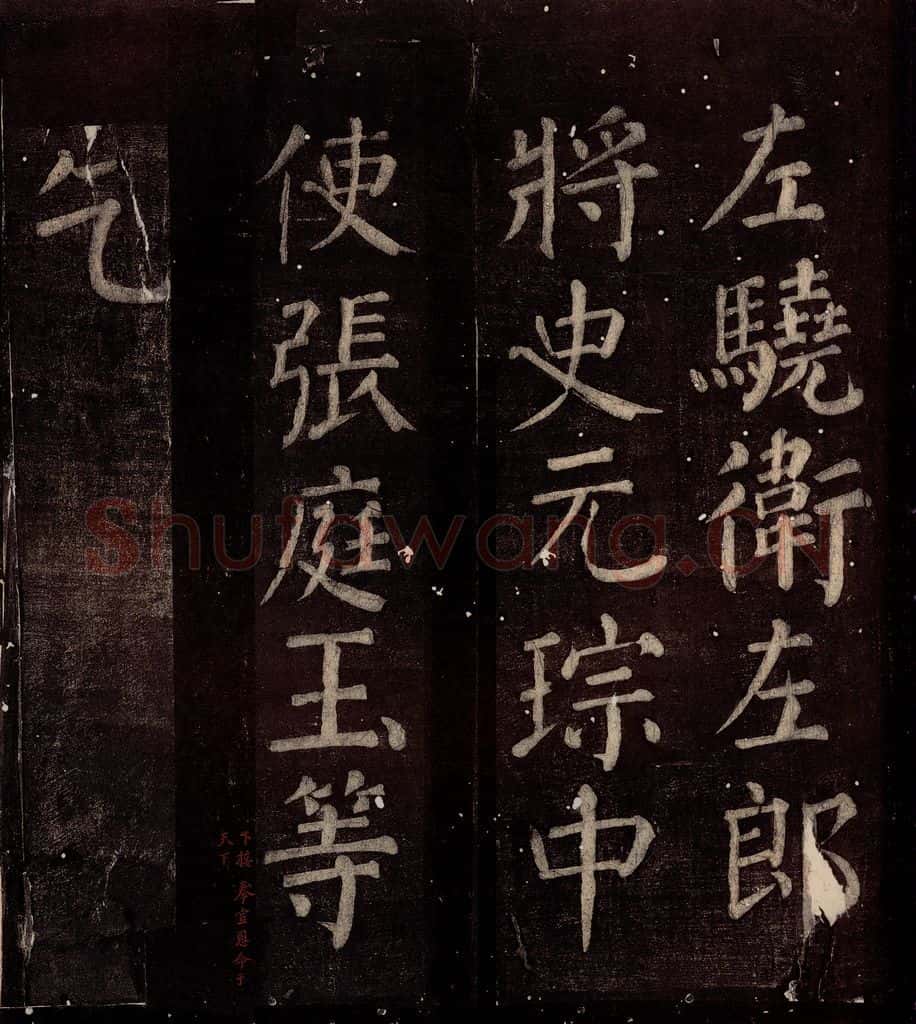 左驍衛左郎
將史元琮中
使張庭玉等
下接
天下
奉宣恩命于
乞
Shufawang.CN